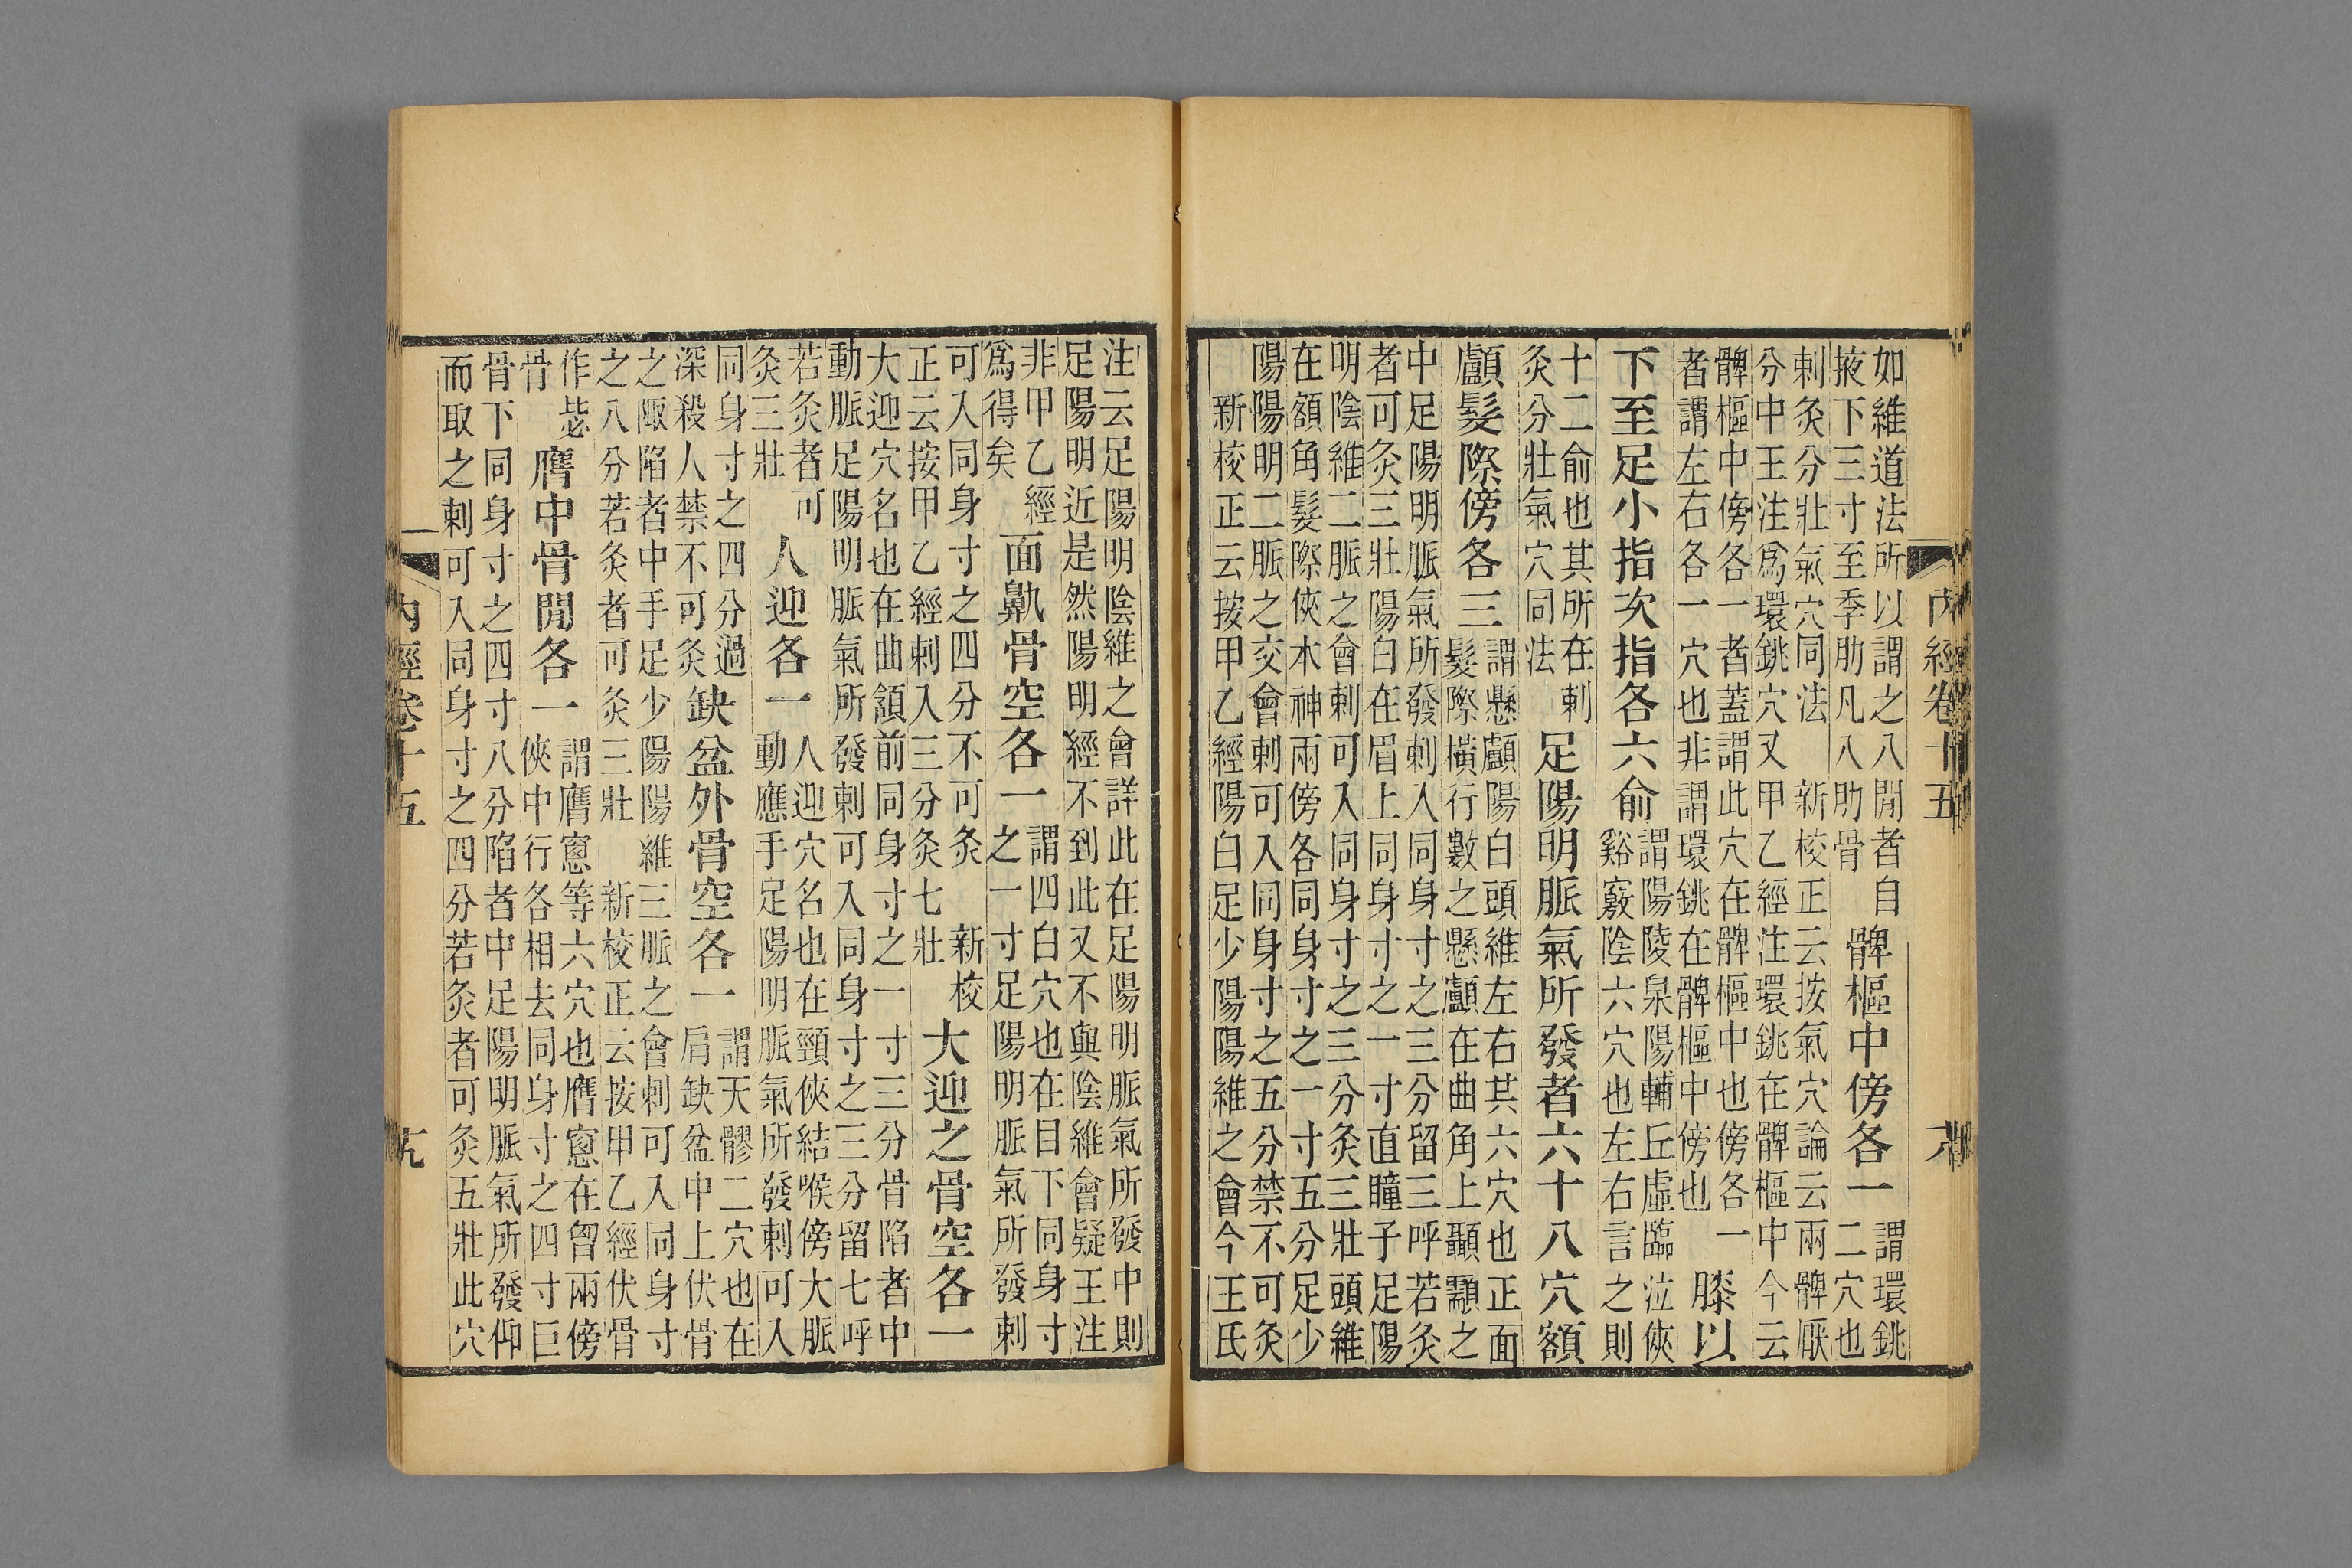 内經卷十五
如維道法所以謂之八閒者自
掖下三寸至季肋凡八肋骨
髀樞中傍各一
謂環銚
二穴也
刺灸分壯氣穴同法　新校正云按氣穴論云兩髀厭
分中王注爲環銚穴又甲乙經注環銚在髀樞中今云
髀樞中傍各一者蓋謂此穴在髀樞中也傍各一
者謂左右各一穴也非謂環銚在髀樞中傍也
膝以
下至足小指次指各六俞
謂陽陵泉陽輔丘虛臨泣俠
谿竅陰六穴也左右言之則
十二俞也其所在刺
灸分壯氣穴同法
足陽明脈氣所發者六十八穴額
顱髮際傍各三
謂懸顱陽白頭維左右共六穴也正面
髮際橫行數之懸顱在曲角上顳顬之
中足陽明脈氣所發刺入同身寸之三分留三呼若灸
者可灸三壯陽白在眉上同身寸之一寸直瞳子足陽
明陰維二脈之會刺可入同身寸之三分灸三壯頭維
在額角髮際俠本神兩傍各同身寸之一寸五分足少
陽陽明二脈之交會刺可入同身寸之五分禁不可灸
新校正云按甲乙經陽白足少陽陽維之會今王氏
注云足陽明陰維之會詳此在足陽明脈氣所發中則
足陽明近是然陽明經不到此又不與陰維會疑王注
非甲乙經
爲得矣
面鼽骨空各一
謂四白穴也在目下同身寸
之一寸足陽明脈氣所發刺
可入同身寸之四分不可灸　新校
正云按甲乙經刺入三分灸七壯
大迎之骨空各一
大迎穴名也在曲頷前同身寸之一寸三分骨陷者中
動脈足陽明脈氣所發刺可入同身寸之三分留七呼
若灸者可
灸三壯
人迎各一
人迎穴名也在頸俠結喉傍大脈
動應手足陽明脈氣所發刺可入
同身寸之四分過
深殺人禁不可灸
缺盆外骨空各一
謂天髎二穴也在
肩缺盆中上伏骨
之陬陷者中手足少陽陽維三脈之會刺可入同身寸
之八分若灸者可灸三壯　新校正云按甲乙經伏骨
作毖
骨
膺中骨閒各一
謂膺窻等六穴也膺窻在曾兩傍
俠中行各相去同身寸之四寸巨
骨下同身寸之四寸八分陷者中足陽明脈氣所發仰
而取之刺可入同身寸之四分若灸者可灸五壯此穴
内經卷十五